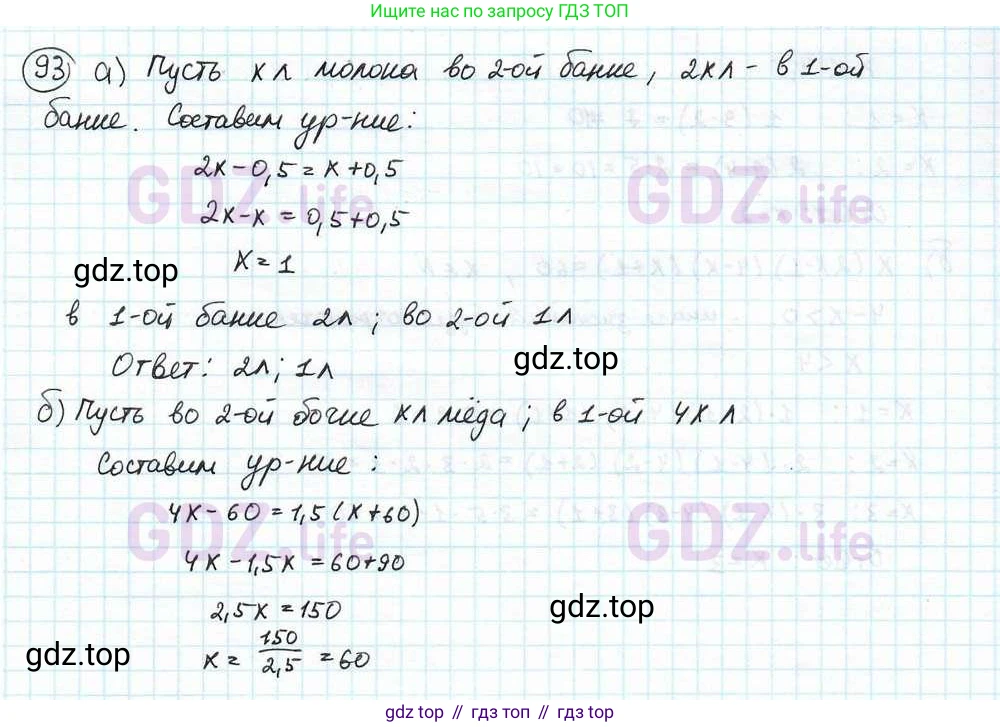 Ищите нас по запросу ГДЗ ТОП
93 а) Пусть х л молока во 2-ой банке, 2хл - в 1-ой
банке. Составим ур-ние:
2х-0,5 = х+0,5
GDZ.life GDZ.life
2х-х = 0,5+0,5
gdz.top х = 1
в 1-ой банке 2л; во 2-ой 1л
gdz.top
Ответ: 2л; 1л
б) Пусть во 2-ой бочке х л мёда; в 1-ой 4х л
Составим ур-ние:
4х-60 = 1,5(х+60)
GDZ.life GDZ.life
4х-1,5х = 60+90
2,5х = 150
gdz.top
gdz.top х = 150/2,5 = 60
gdz.top // гдз топ // gdz top